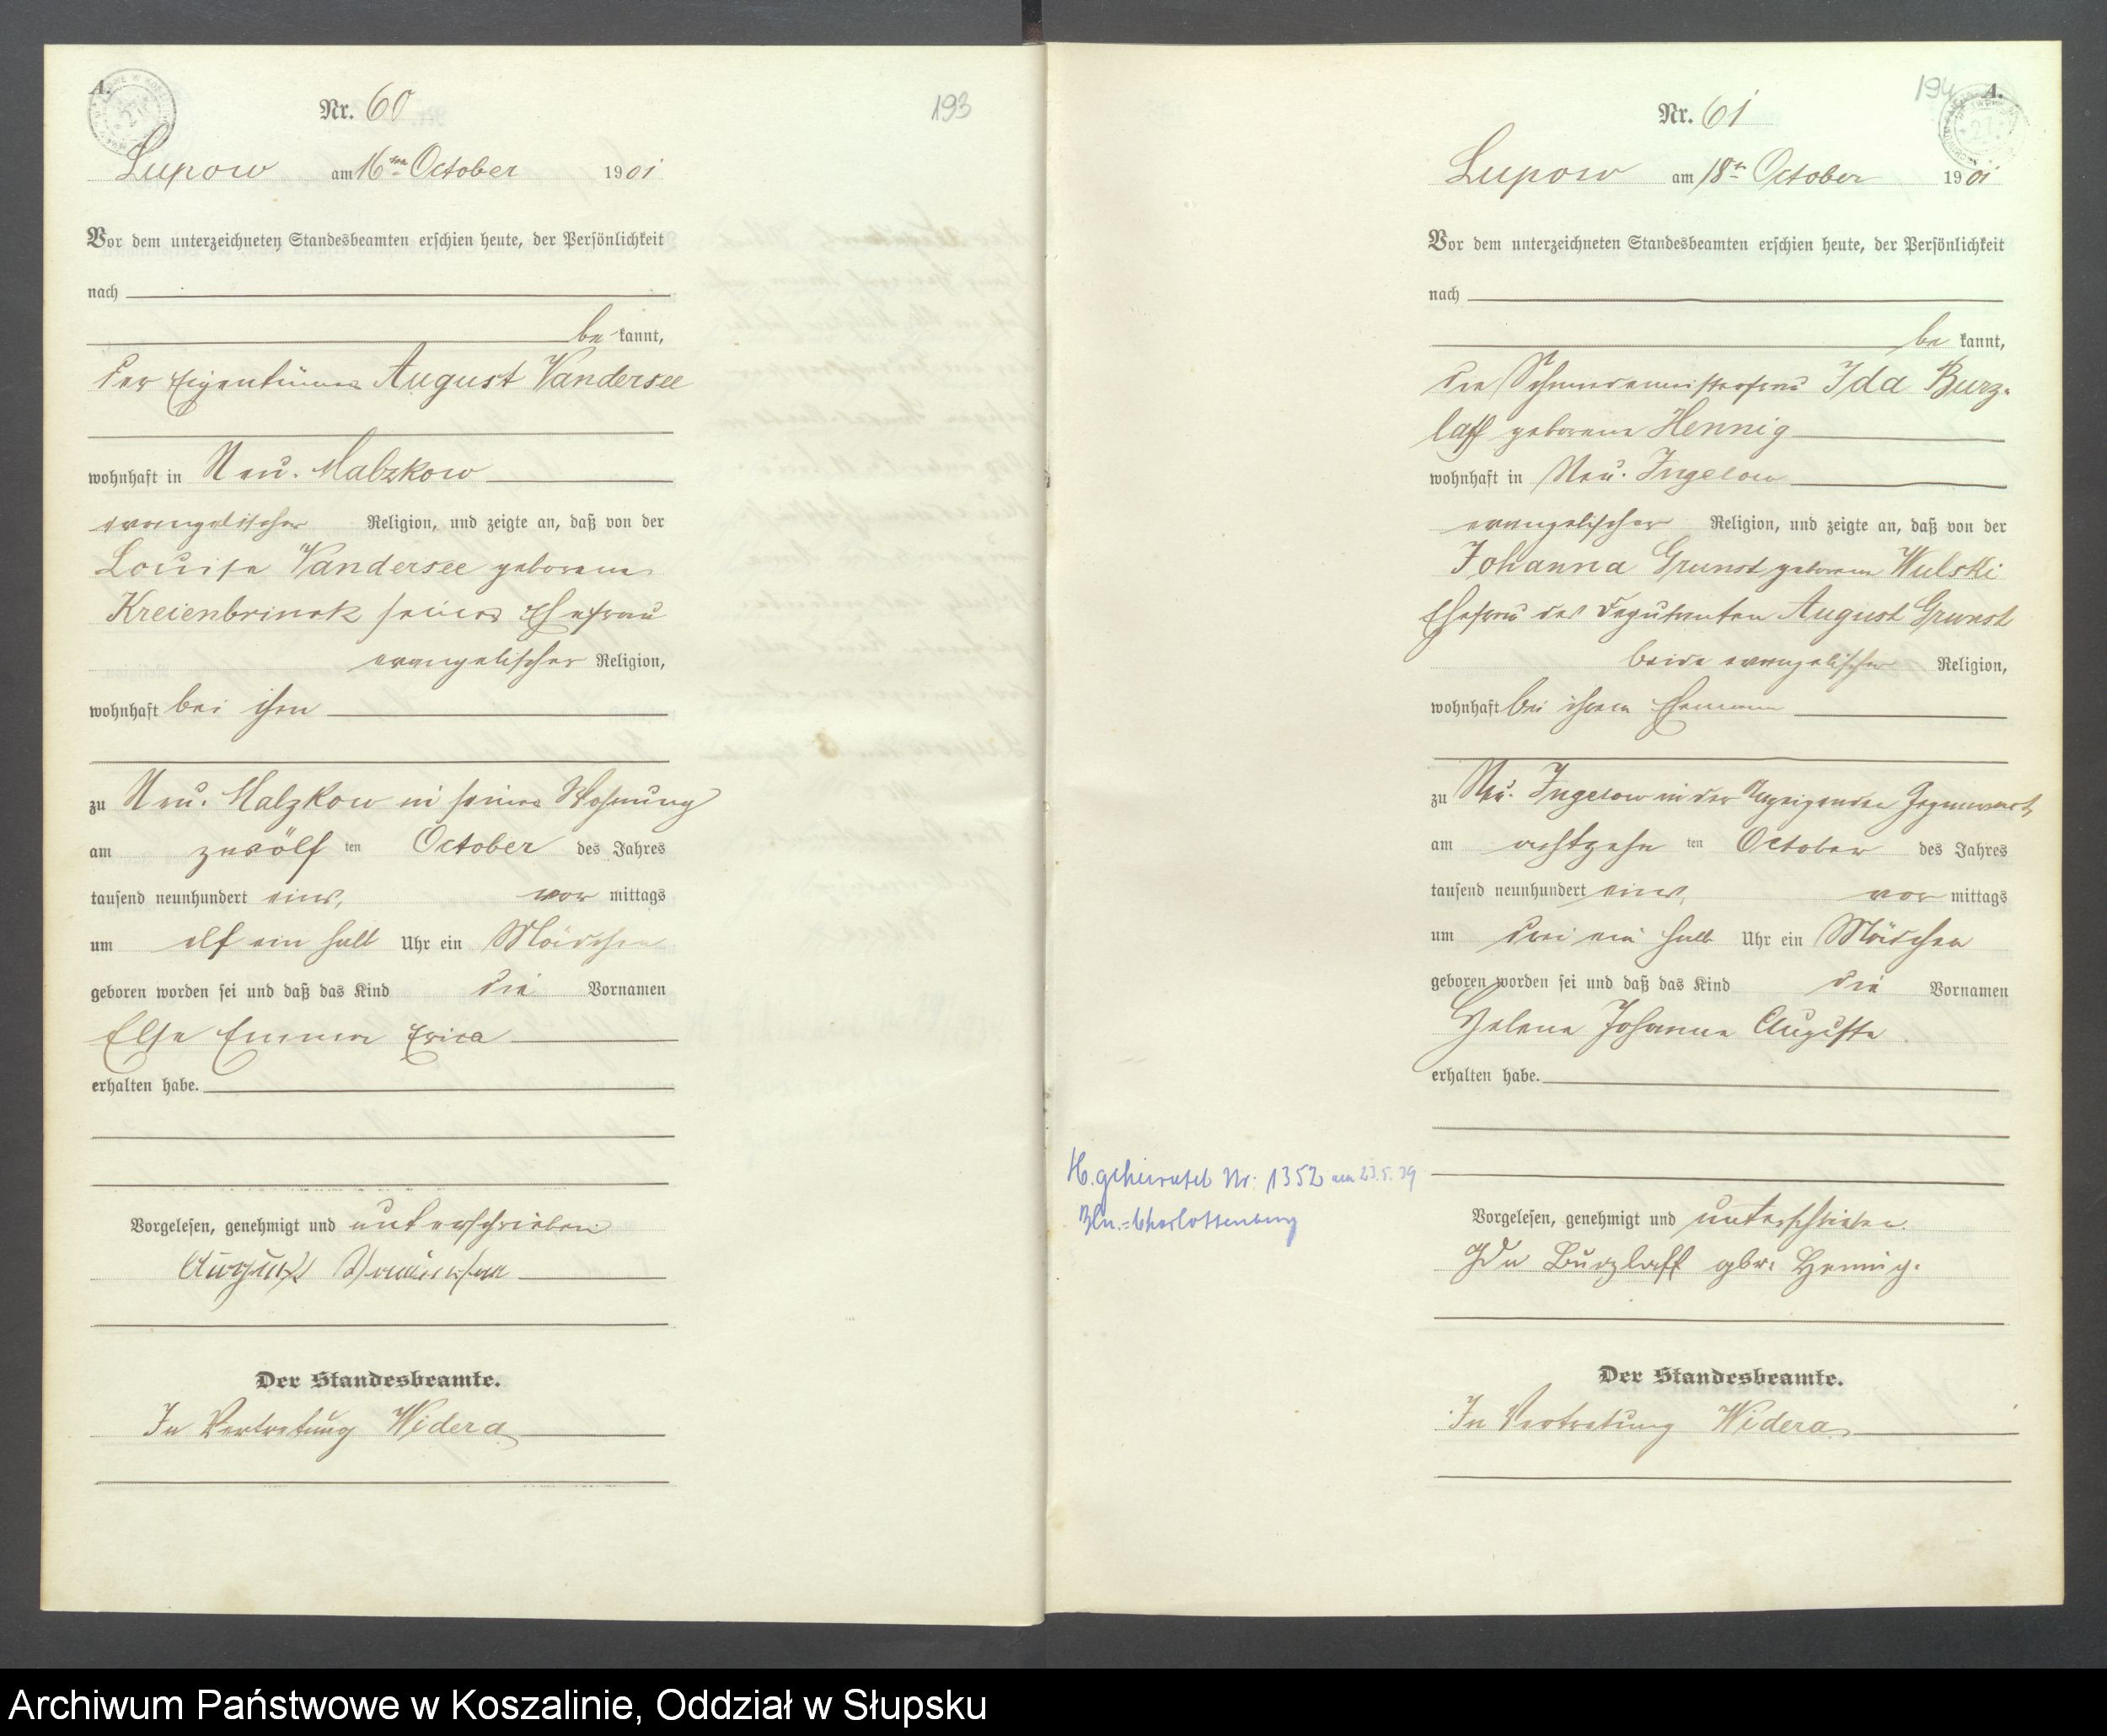 A.
Nr. 60
193
Lupow am 16ten October 1901
Vor dem unterzeichneten Standesbeamten erschien heute, der Persönlichkeit
nach
be kannt,
der Eigentümer August Vandersee
wohnhaft in Neu-Malzkow
evangelischer Religion, und zeigte an, daß von der
Louise Vandersee geborene
Kreienbrinck seiner Ehefrau
evangelischer Religion,
wohnhaft bei ihm
zu Neu-Malzkow in seiner Wohnung
am zwölf ten October des Jahres
tausend neunhundert eins, vor mittags
um elf ein halb Uhr ein Mädchen
geboren worden sei und daß das Kind die Vornamen
Else Emma Erica
erhalten habe.
Vorgelesen, genehmigt und unterschrieben
August
Der Standesbeamte.
In Vertretung Widera
194
A.
Nr. 61
Lupow am 18ten October 1901
Vor dem unterzeichneten Standesbeamten erschien heute, der Persönlichkeit
nach
be kannt,
die Ida Burz-
laff geborene Hennig
wohnhaft in Neu-Jugelow
evangelischer Religion, und zeigte an, daß von der
Johanna Grunst geborene Wulski
Ehefrau des Deputanten August Grunst
beide evangelischer Religion,
wohnhaft bei ihrem Ehemann
zu Neu-Jugelow in der Anzeigenden Gegenwart,
am achtzehn ten October des Jahres
tausend neunhundert eins, vor mittags
um drei ein halb Uhr ein Mädchen
geboren worden sei und daß das Kind die Vornamen
Helene Johanna Auguste
erhalten habe.
H. geheiratet Nr: 1352 am 23.5.39
Bln.=Charlottenburg
Vorgelesen, genehmigt und unterschrieben.
Ida Burzlaff gbr. Hennig.
Der Standesbeamte.
In Vertretung Widera
Archiwum Państwowe w Koszalinie, Oddział w Słupsku